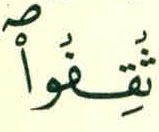 ثُقِفُواْ ۖ